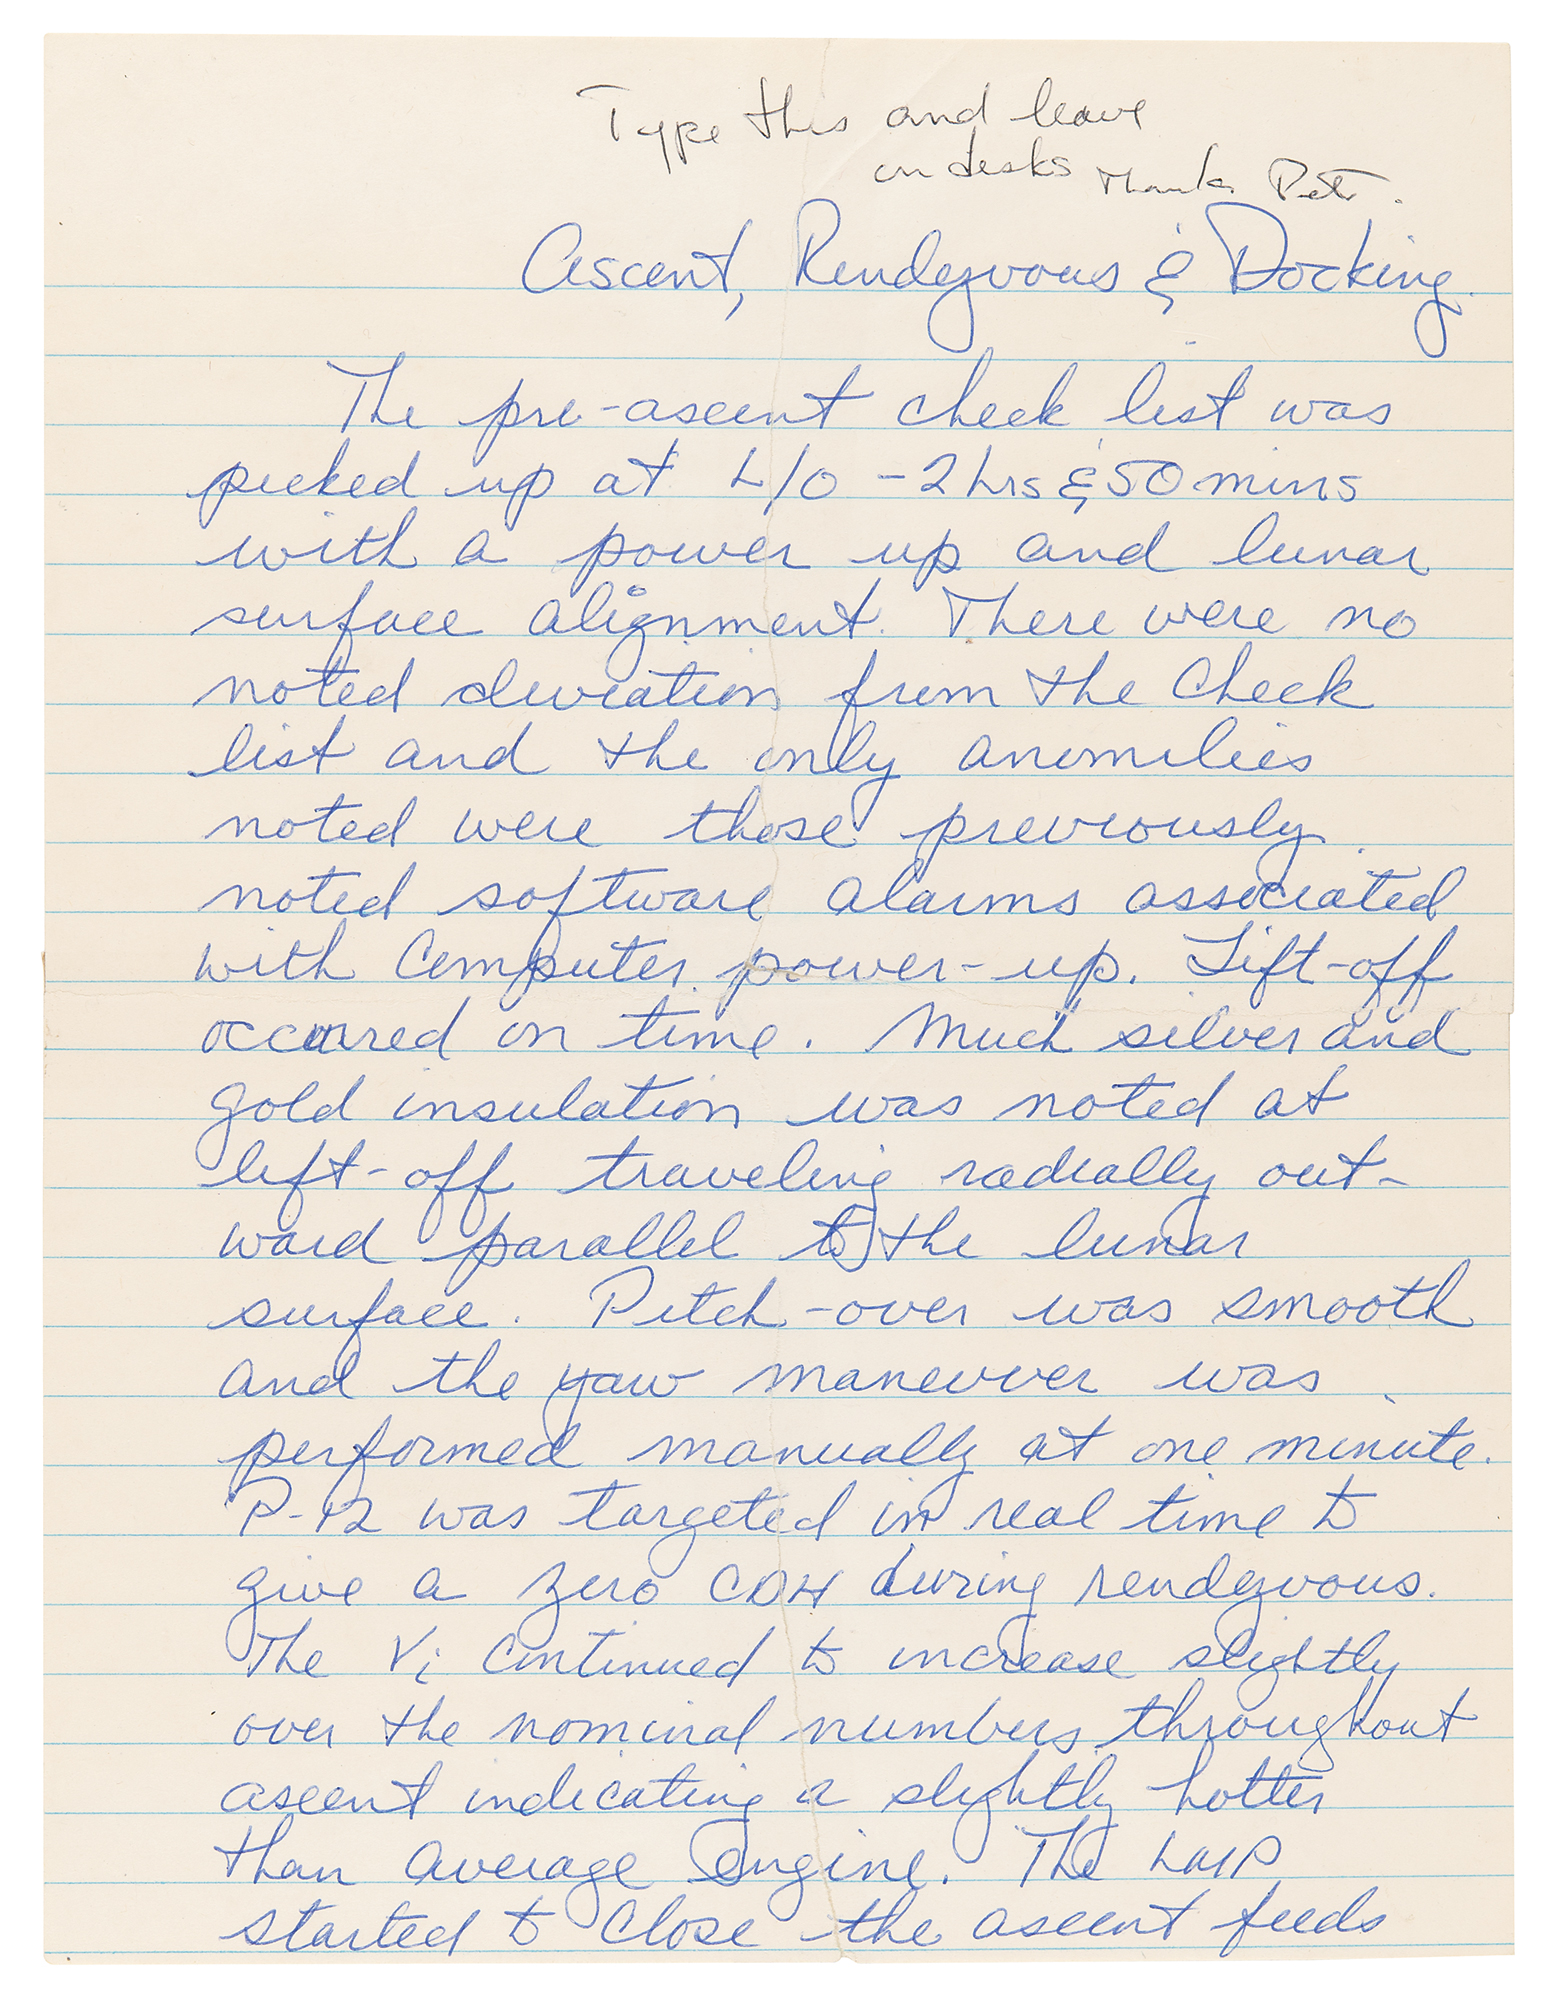 Type this and leave
on desks Thanks Pete.
Ascent, Rendezvous & Docking.
The pre-ascent check list was
picked up at L/O -2hrs & 50 mins
with a power up and lunar
surface alignment. There were no
noted deviation from the check
list and the only anomilies
noted were those previously
noted software alarms associated
with computer power-up. Lift-off
occured on time. Much silver and
gold insulation was noted at
lift-off traveling radially out-
ward parallel to the lunar
surface. Pitch-over was smooth
and the yaw maneuver was
performed manually at one minute.
P-12 was targeted in real time to
give a zero CDH during rendezvous.
The Vi continued to increase slightly
over the nominal numbers throughout
ascent indicating a slightly hotter
than average engine. The LMP
started to close the ascent feeds